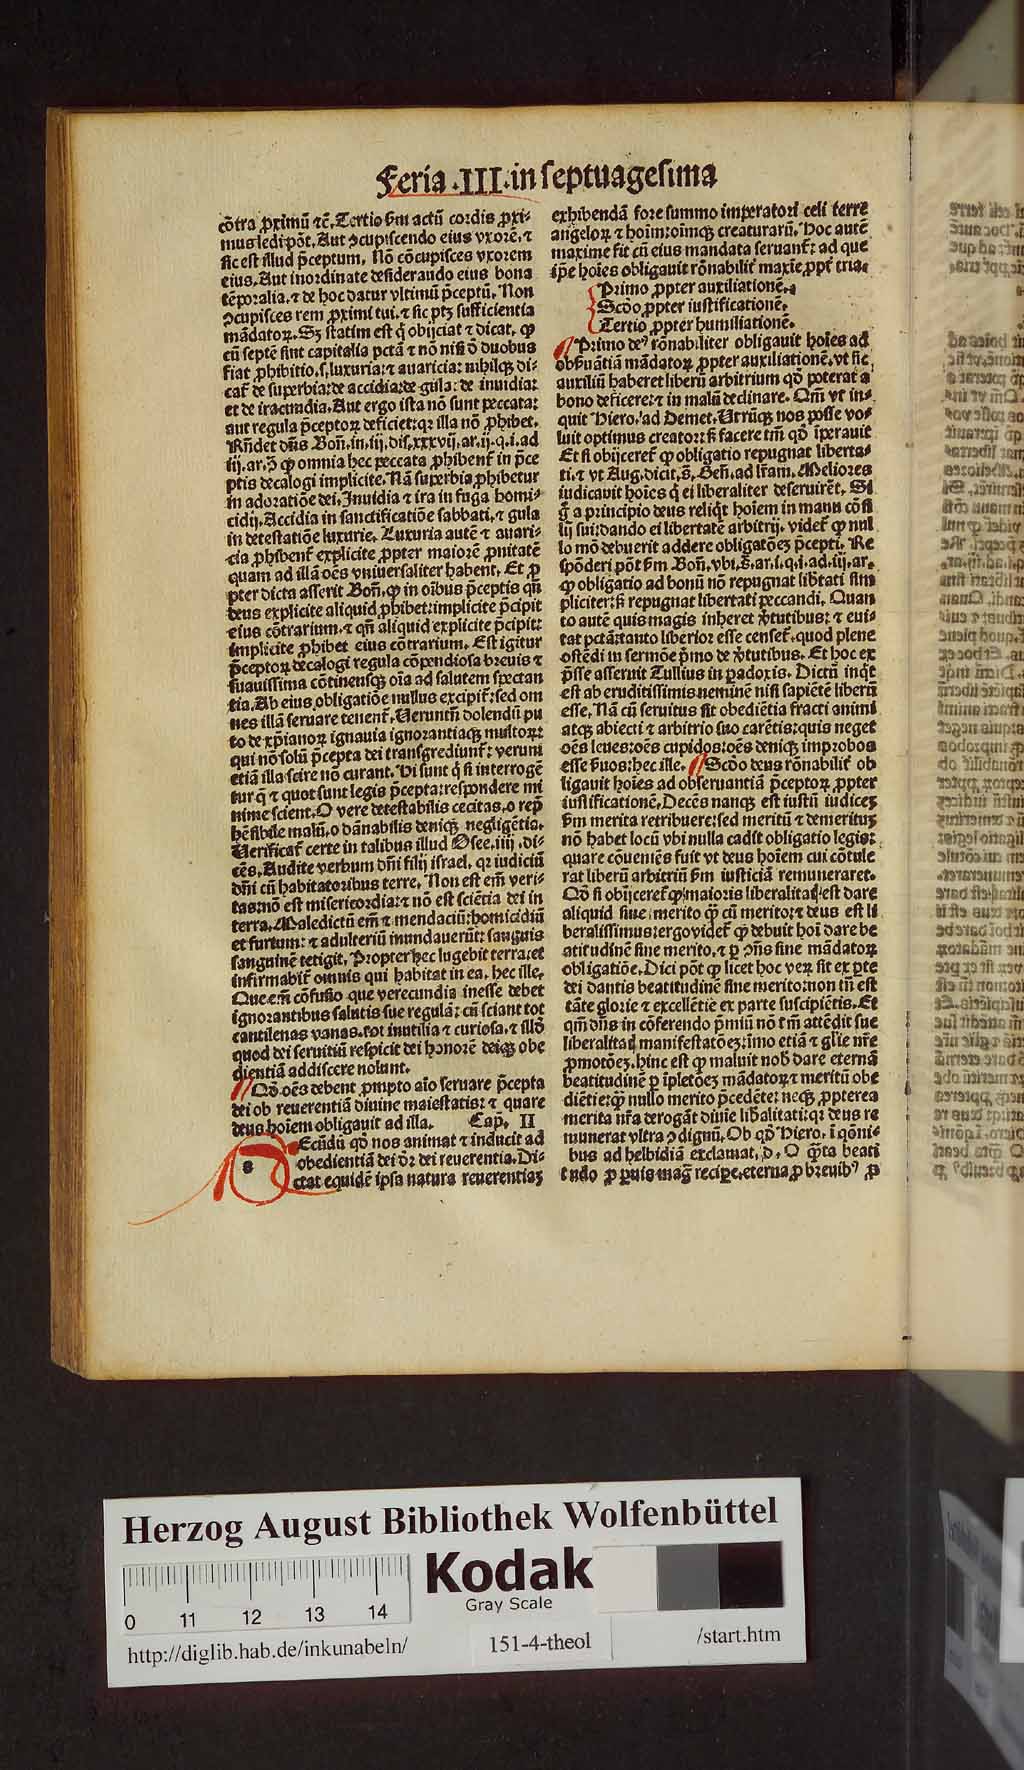 Feria .III. in septuagesima
cōtra ꝓximū ⁊c̄. Tertio s̄m actū cordis ꝓxi-
mus ledi pōt. Aut ꝯcupiscendo eius vxorē. ⁊
sic est illud p̄ceptum. Nō cōcupisces vxorem
eius. Aut inordinate desiderando eius bona
tēporalia. ⁊ de hoc datur vltimū p̄ceptū. Non
ꝯcupisces rem ꝓximi tui. ⁊ sic ptꝫ sufficientia
mādatoꝝ. Sꝫ statim est q̄ obijciat ⁊ dicat. ꝙ
cū septē sint capitalia pctā ⁊ nō nisi d̄ duobus
fiat ꝓhibitio. s. luxuria: ⁊ auaricia: nihilqꝫ di-
cat̄ de superbia: de accidia: de gula: de inuidia:
et de iracundia. Aut ergo ista nō sunt peccata:
aut regula p̄ceptoꝝ deficiet: qꝛ illa nō ꝓhibet.
Rn̄det dn̄s Bon̄. in. iij. dis. xxxvij. ar. ij. q. i. ad
iij. ar. ꝙ omnia hec peccata ꝓhibent̄ in p̄ce
ptis decalogi implicite. Nā superbia ꝓhibetur
in adoratiōe dei. Inuidia ⁊ ira in fuga homi-
cidij. Accidia in sanctificatiōe sabbati. ⁊ gula
in detestatiōe luxurie. Luxuria autē ⁊ auari-
cia ꝓhibent̄ explicite propter maiorē ꝓnitatē
quam ad illā oēs vniuersaliter habent. Et ꝓ
pter dicta asserit Bon̄. ꝙ in oībus p̄ceptis qn̄
deus explicite aliquid ꝓhibet: implicite p̄cipit
eius cōtrarium. ⁊ qn̄ aliquid explicite p̄cipit:
implicite ꝓhibet eius cōtrarium. Est igitur
p̄ceptoꝝ decalogi regula cōpendiosa breuis ⁊
suauissima cōtinensqꝫ oīa ad salutem spectan
tia. Ab eius obligatiōe nullus excipit̄: sed om
nes illā seruare tenent̄. Verumtn̄ dolendū pu
to de xp̄ianoꝝ ignauia ignorantiaqꝫ multoꝝ:
qui nō solū p̄cepta dei transgrediunt̄: verum
etiā illa scire nō curant. Hi sunt q̄ si interrogē
tur q̄ ⁊ quot sunt legis p̄cepta: respondere mi
nime scient. O vere detestabilis cecitas. o rep̄
hēsibile malū. o dānabilis deniqꝫ negligētia.
Verificat̄ certe in talibus illud Osee. iiij. di-
cēs. Audite verbum dn̄i filij israel. qꝛ iudiciū
dn̄i cū habitatoribus terre. Non est em̄ veri-
tas: nō est misericordia: ⁊ nō est sciētia dei in
terra. Maledictū em̄ ⁊ mendaciū: homicidiū
et furtum: ⁊ adulteriū inundauerūt: sanguis
sanguinē tetigit. Propter hec lugebit terra: et
infirmabit̄ omnis qui habitat in ea. hec ille.
Que em̄ cōfusio que verecundia inesse debet
ignorantibus salutis sue regulā: cū sciant tot
cantilenas vanas. tot inutilia ⁊ curiosa. ⁊ illd̄
quod dei seruitiū respicit dei honorē deiqꝫ obe
dientiā addiscere nolunt.
Qd̄ oēs debent ꝓmpto aīo seruare p̄cepta
dei ob reuerentiā diuine maiestatis: ⁊ quare
deus hoīem obligauit ad illa. Cap. II
s Ecūdū qd̄ nos animat ⁊ inducit ad
obedientiā dei dr̄ dei reuerentia. Di-
ctat equidē ipsa natura reuerentiaꝫ
exhibendā fore summo imperatori celi terre
angeloꝝ ⁊ hoīm: oīmqꝫ creaturarū. Hoc autē
maxime fit cū eius mandata seruant̄: ad que
ip̄e hoīes obligauit rōnabilit̄ maxīe ꝓpt̄ tria.
Primo ꝓpter auxiliationē.
Scd̄o ꝓpter iustificationē.
Tertio ꝓpter humiliationē.
Primo deꝰ rōnabiliter obligauit hoīes ad
obs̄uātiā mādatoꝝ ꝓpter auxiliationē. vt sic
auxiliū haberet liberū arbitrium qd̄ poterat a
bono deficere: ⁊ in malū declinare. Qm̄ vt in-
quit Hiero. ad Demet. Vtrūqꝫ nos posse vo-
luit optimus creator: sꝫ facere tm̄ qd̄ īperauit
Et si obijceret̄ ꝙ obligatio repugnat liberta-
ti. ⁊ vt Aug. dicit. s. Gen̄. ad lr̄am. Meliores
iudicauit hoīes q̄ ei liberaliter deseruirēt. Si
g̊ a principio deus reliq̄t hoīem in manu cōsi
lij sui: dando ei libertatē arbitrij. videt̄ ꝙ nul
lo mō debuerit addere obligatōeꝫ p̄cepti. Re
spōderi pōt s̄m Bon̄. vbi. s. ar. i. q. i. ad. iij. ar.
ꝙ obligatio ad bonū nō repugnat lib̄tati sim
pliciter: sꝫ repugnat libertati peccandi. Quan
to autē quis magis inheret v̄tutibus: ⁊ eui-
tat pctā: tanto liberior esse censet̄. quod plene
ostēdi in sermōe p̄mo de v̄tutibus. Et hoc ex
p̄sse asseruit Tullius in ꝑadoxis. Dictū inq̄t
est ab eruditissimis neminē nisi sapiētē liberū
esse. Nā cū seruitus sit obediētia fracti animi
atqꝫ abiecti ⁊ arbitrio suo carētis: quis neget
oēs leues: oēs cupidos: oēs deniqꝫ improbos
esse s̄uos: hec ille. Scd̄o deus rōnabilit̄ ob
ligauit hoīes ad obseruantiā p̄ceptoꝝ ꝓpter
iustificationē. Decēs nanqꝫ est iustū iudiceꝫ
s̄m merita retribuere: sed meritū ⁊ demerituꝫ
nō habet locū vbi nulla cadit obligatio legis:
quare cōueniēs fuit vt deus hoīem cui cōtule
rat liberū arbitriū s̄m iusticiā remuneraret.
Qd̄ si obijceret̄ ꝙ maioris liberalitatis est dare
aliquid sine merito qꝫ cū merito: ⁊ deus est li
beralissimus: ergo videt̄ ꝙ debuit hoī dare be
atitudinē sine merito. ⁊ ꝑ ꝯn̄s sine mādatoꝝ
obligatiōe. Dici pōt ꝙ licet hoc veꝝ sit ex ꝑte
dei dantis beatitudinē sine merito: non tn̄ est
tāte glorie ⁊ excellētie ex parte suscipiētis. Et
qm̄ dn̄s in cōferendo p̄miū nō tm̄ attēdit sue
liberalitatis manifestatōeꝫ: imo etiā ⁊ gl̄ie nr̄e
ꝓmotōeꝫ. hinc est ꝙ maluit nob̄ dare eternā
beatitudinē ꝑ īpletōeꝫ mādatoꝝ ⁊ meritū obe
diētie: qꝫ nullo merito p̄cedēte: neqꝫ ꝓpterea
merita nr̄a derogāt diuīe lib̄alitati: qꝛ deus re
munerat vltra ꝯdignū. Ob qd̄ Hiero. ī q̄oni-
bus ad helbidiā exclamat. d. O q̄ta beati
tudo ꝓ ꝑuis maḡ recipe. eterna ꝓ breuibꝰ ꝓ
Herzog August Bibliothek Wolfenbüttel
Kodak
Gray Scale
0 11 12 13 14
http://diglib.hab.de/inkunabeln/
151-4-theol
/start.htm